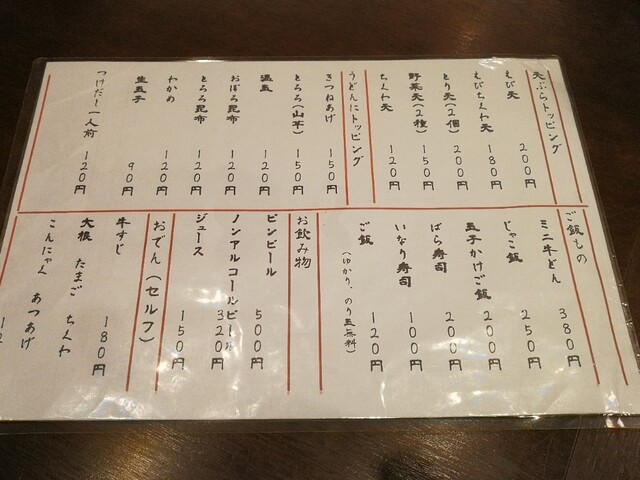 天ぷらトッピング
えび天 200円
えびちくわ天 180円
とり天(2個) 200円
野菜天(2種) 150円
ちくわ天 120円
うどんにトッピング
きつねあげ 150円
とろろ(山芋) 150円
温玉 120円
おぼろ昆布 120円
とろろ昆布 120円
わかめ 120円
生玉子 90円
つけだし一人前 120円
ご飯もの
ミニ牛どん 380円
じゃこ飯 250円
玉子かけご飯 200円
ばら寿司 200円
いなり寿司 100円
ご飯 120円
(ゆかり、のり玉無料)
お飲み物
ビンビール 500円
ノンアルコールビール 320円
ジュース 150円
おでん(セルフ)
牛すじ 180円
大根 たまご ちくわ
こんにゃく あつあげ
12